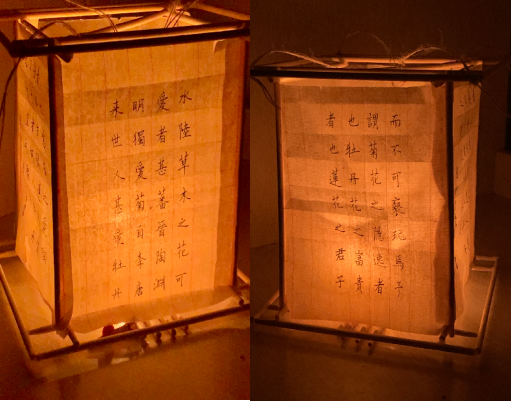 水陸草木之花可
愛者甚蕃晉陶淵
明獨愛菊自李唐
来世人甚愛牡丹
而不可褻玩焉予
謂菊花之隱逸者
也牡丹花之富貴
者也蓮花之君子